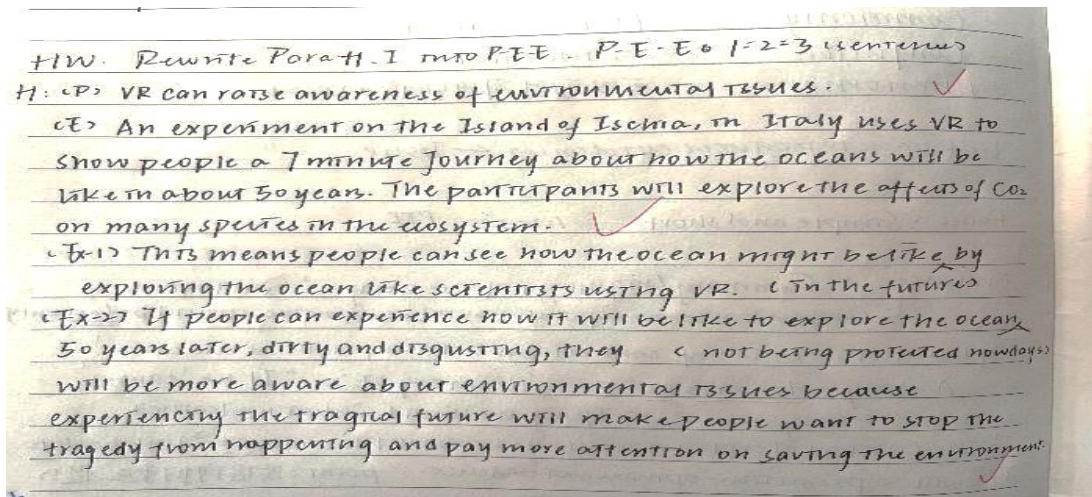 HW. Rewrite Para H. I into PEE. P-E-E 1-2-3 sentences
H: (P) VR can raise awareness of environmental issues.
(E) An experiment on the Island of Ischia, in Italy uses VR to
show people a 7 minute Journey about how the oceans will be
like in about 50 years. The participants will explore the affects of CO₂
on many species in the ecosystem.
(Ex-1) This means people can see how the ocean might be like by
exploring the ocean like scientists using VR. (in the future)
(Ex-2) If people can experience how it will be like to explore the ocean
50 years later, dirty and disgusting, they (not being protected nowdays)
will be more aware about environmental issues because
experiencing the tragical future will make people want to stop the
tragedy from happening and pay more attention on saving the environment.